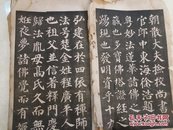 朝散大夫檢校尚書都
官郎中東海徐浩題額
粵妙法蓮華諸佛之秘
藏也多寶佛塔證經之
踴現也發明資乎十力
弘建在於四依有禪師
法號楚金姓程廣平人
也祖父並信著釋門慶
歸法胤母高氏久而無
妊夜夢諸佛覺而有娠